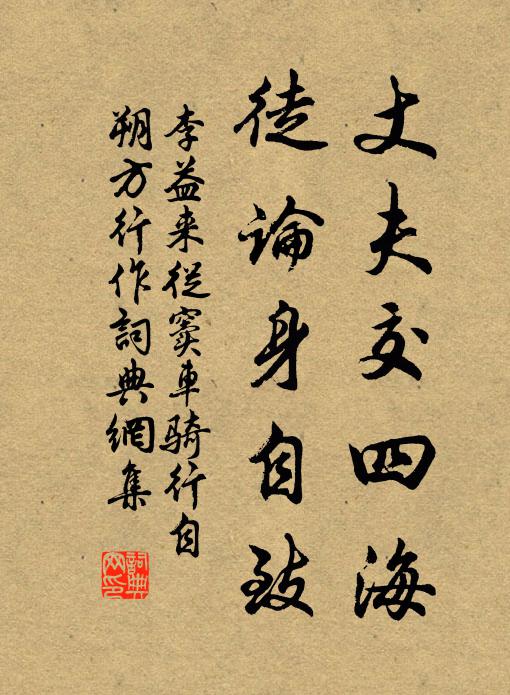 丈夫交四海
徒論身自致
李益来從竇車騎行自
朔方行作詞典網集
詞典网印